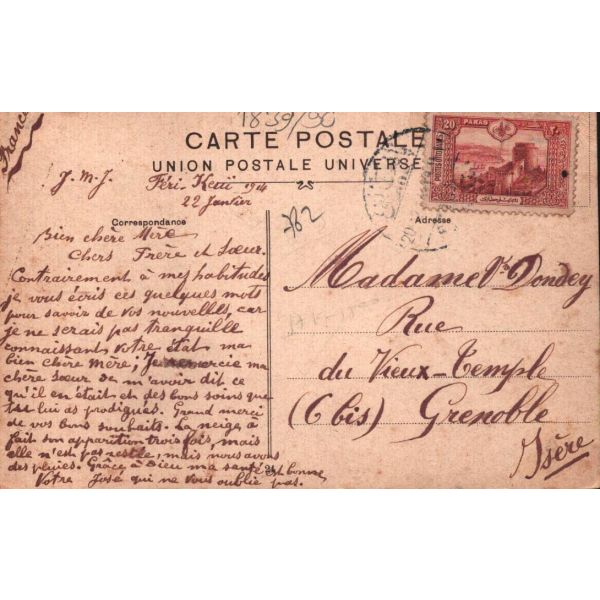 France
1839/90
CARTE POSTALE
UNION POSTALE UNIVERSE
20 PARAS
J. M. J. Féri-Keuï 1914
22 Janvier
25
782
Correspondance
Adresse
Bien chère Mère
Chers Frère et Sœur.
Contrairement à mes habitudes
je vous écris ces quelques mots
pour savoir de vos nouvelles, car
je ne serais pas tranquille
connaissant votre état ma
bien chère mère; Je remercie ma
chère sœur de m'avoir dit ce
qu'il en était et des bons soins que
lui as prodigués. Grand merci
de vos bons souhaits. La neige a
fait son apparition trois fois, mais
elle n'est pas restée, mais nous avons
des pluies. Grâce à Dieu ma santé est bonne
Votre José qui ne vous oublie pas.
Madame Vve Dondey
Rue
du Vieux-Temple
(6 bis) Grenoble
Isère